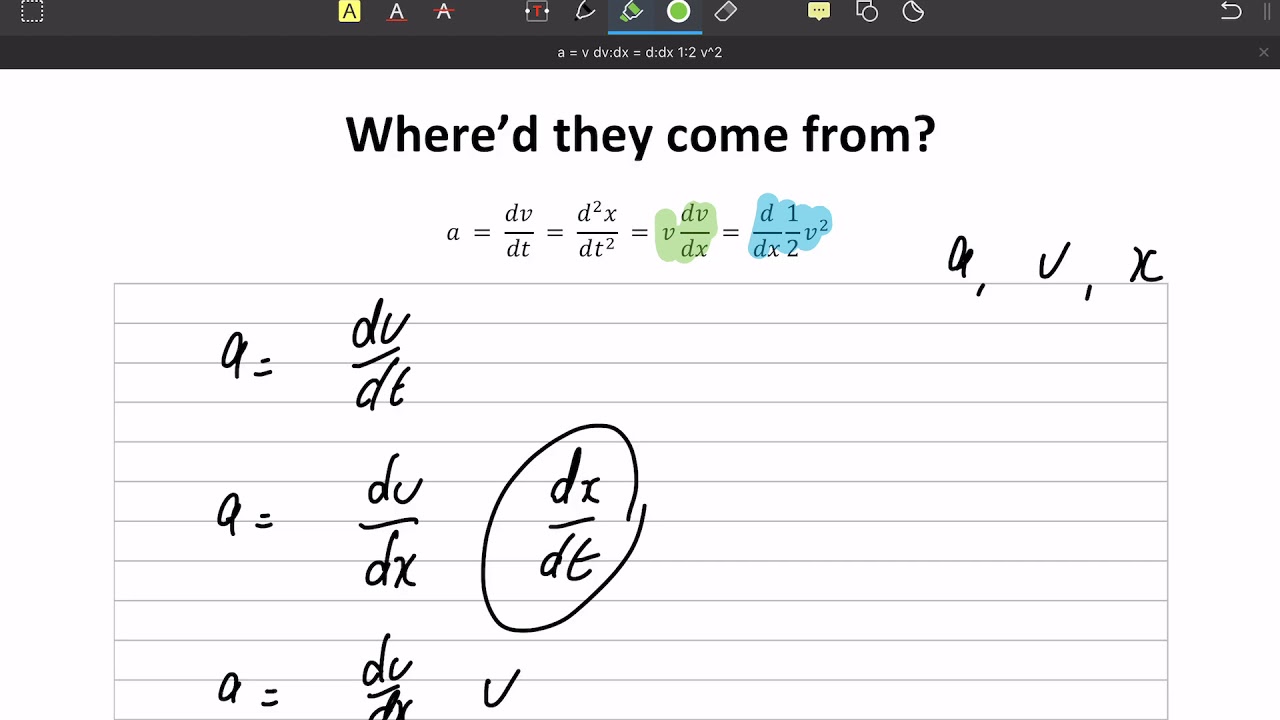 A A A T
a = v dv:dx = d:dx 1:2 v^2
Where'd they come from?
a = dv/dt = d²x/dt² = v dv/dx = d/dx 1/2 v²
a, v, x
a = dv/dt
a = dv/dx dx/dt
a = dv/dx v